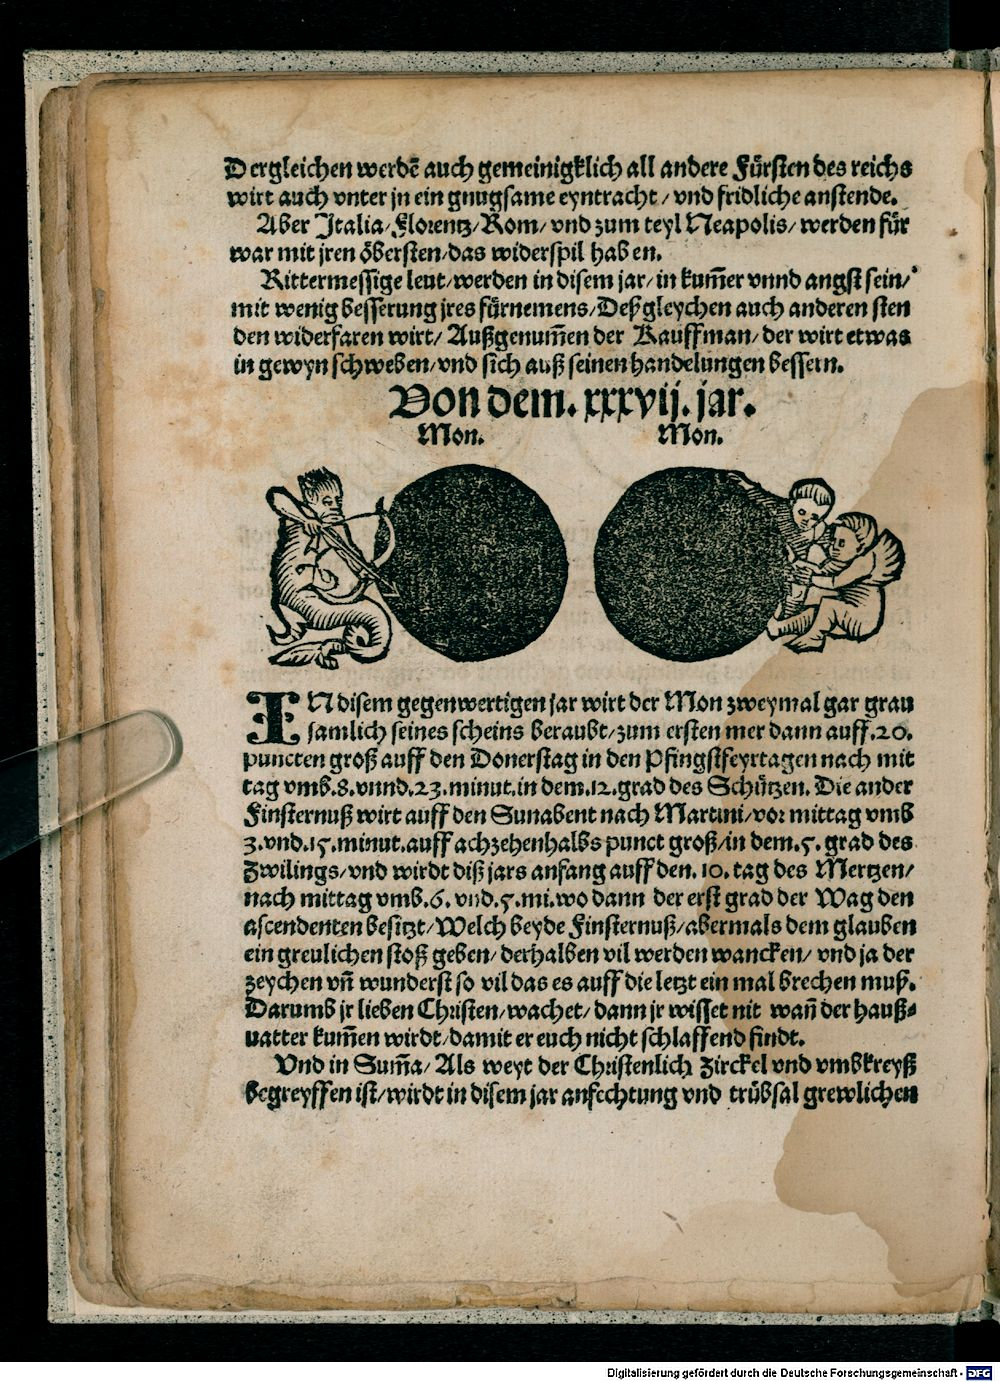 Dergleichen werdē auch gemeinigklich all andere Fürsten des reichs
wirt auch vnter jn ein gnugsame eyntracht / vnd fridliche anstende.
Aber Italia/ Florentz/ Rom/ vnd zum teyl Neapolis/ werden für
war mit jren öbersten/ das widerspil haben.
Rittermessige leut/ werden in disem jar/ in kum̄er vnnd angst sein/
mit wenig besserung jres fürnemens/ Deßgleychen auch anderen sten
den widerfaren wirt/ Außgenum̄en der Kauffman/ der wirt etwas
in gewyn schweben/ vnd sich auß seinen handelungen bessern.
Von dem. xxxvij. jar.
Mon. Mon.
IN disem gegenwertigen jar wirt der Mon zweymal gar grau
samlich seines scheins beraubt/ zum ersten mer dann auff .20.
puncten groß auff den Donerstag in den Pfingstfeyrtagen nach mit
tag vmb .8. vnnd .23. minut. in dem .12. grad des Schützen. Die ander
Finsternuß wirt auff den Sunabent nach Martini/ vor mittag vmb
3. vnd .15. minut. auff achzehenhalbs punct groß/ in dem .5. grad des
Zwilings/ vnd wirdt diß jars anfang auff den. 10. tag des Mertzen/
nach mittag vmb .6. vnd .5. mi. wo dann der erst grad der Wag den
ascendenten besitzt/ Welch beyde Finsternuß/ abermals dem glauben
ein greulichen stoß geben/ derhalben vil werden wancken/ vnd ja der
zeychen vn̄ wunderst so vil das es auff die letzt ein mal brechen muß.
Darumb jr lieben Christen/ wachet/ dann jr wisset nit wan̄ der hauß=
uatter kum̄en wirdt/ damit er euch nicht schlaffend findt.
Vnd in Sum̄a/ Als weyt der Christenlich Zirckel vnd vmbkreyß
begreyffen ist/ wirdt in disem jar anfechtung vnd trübsal grewlichen
Digitalisierung gefördert durch die Deutsche Forschungsgemeinschaft - DFG